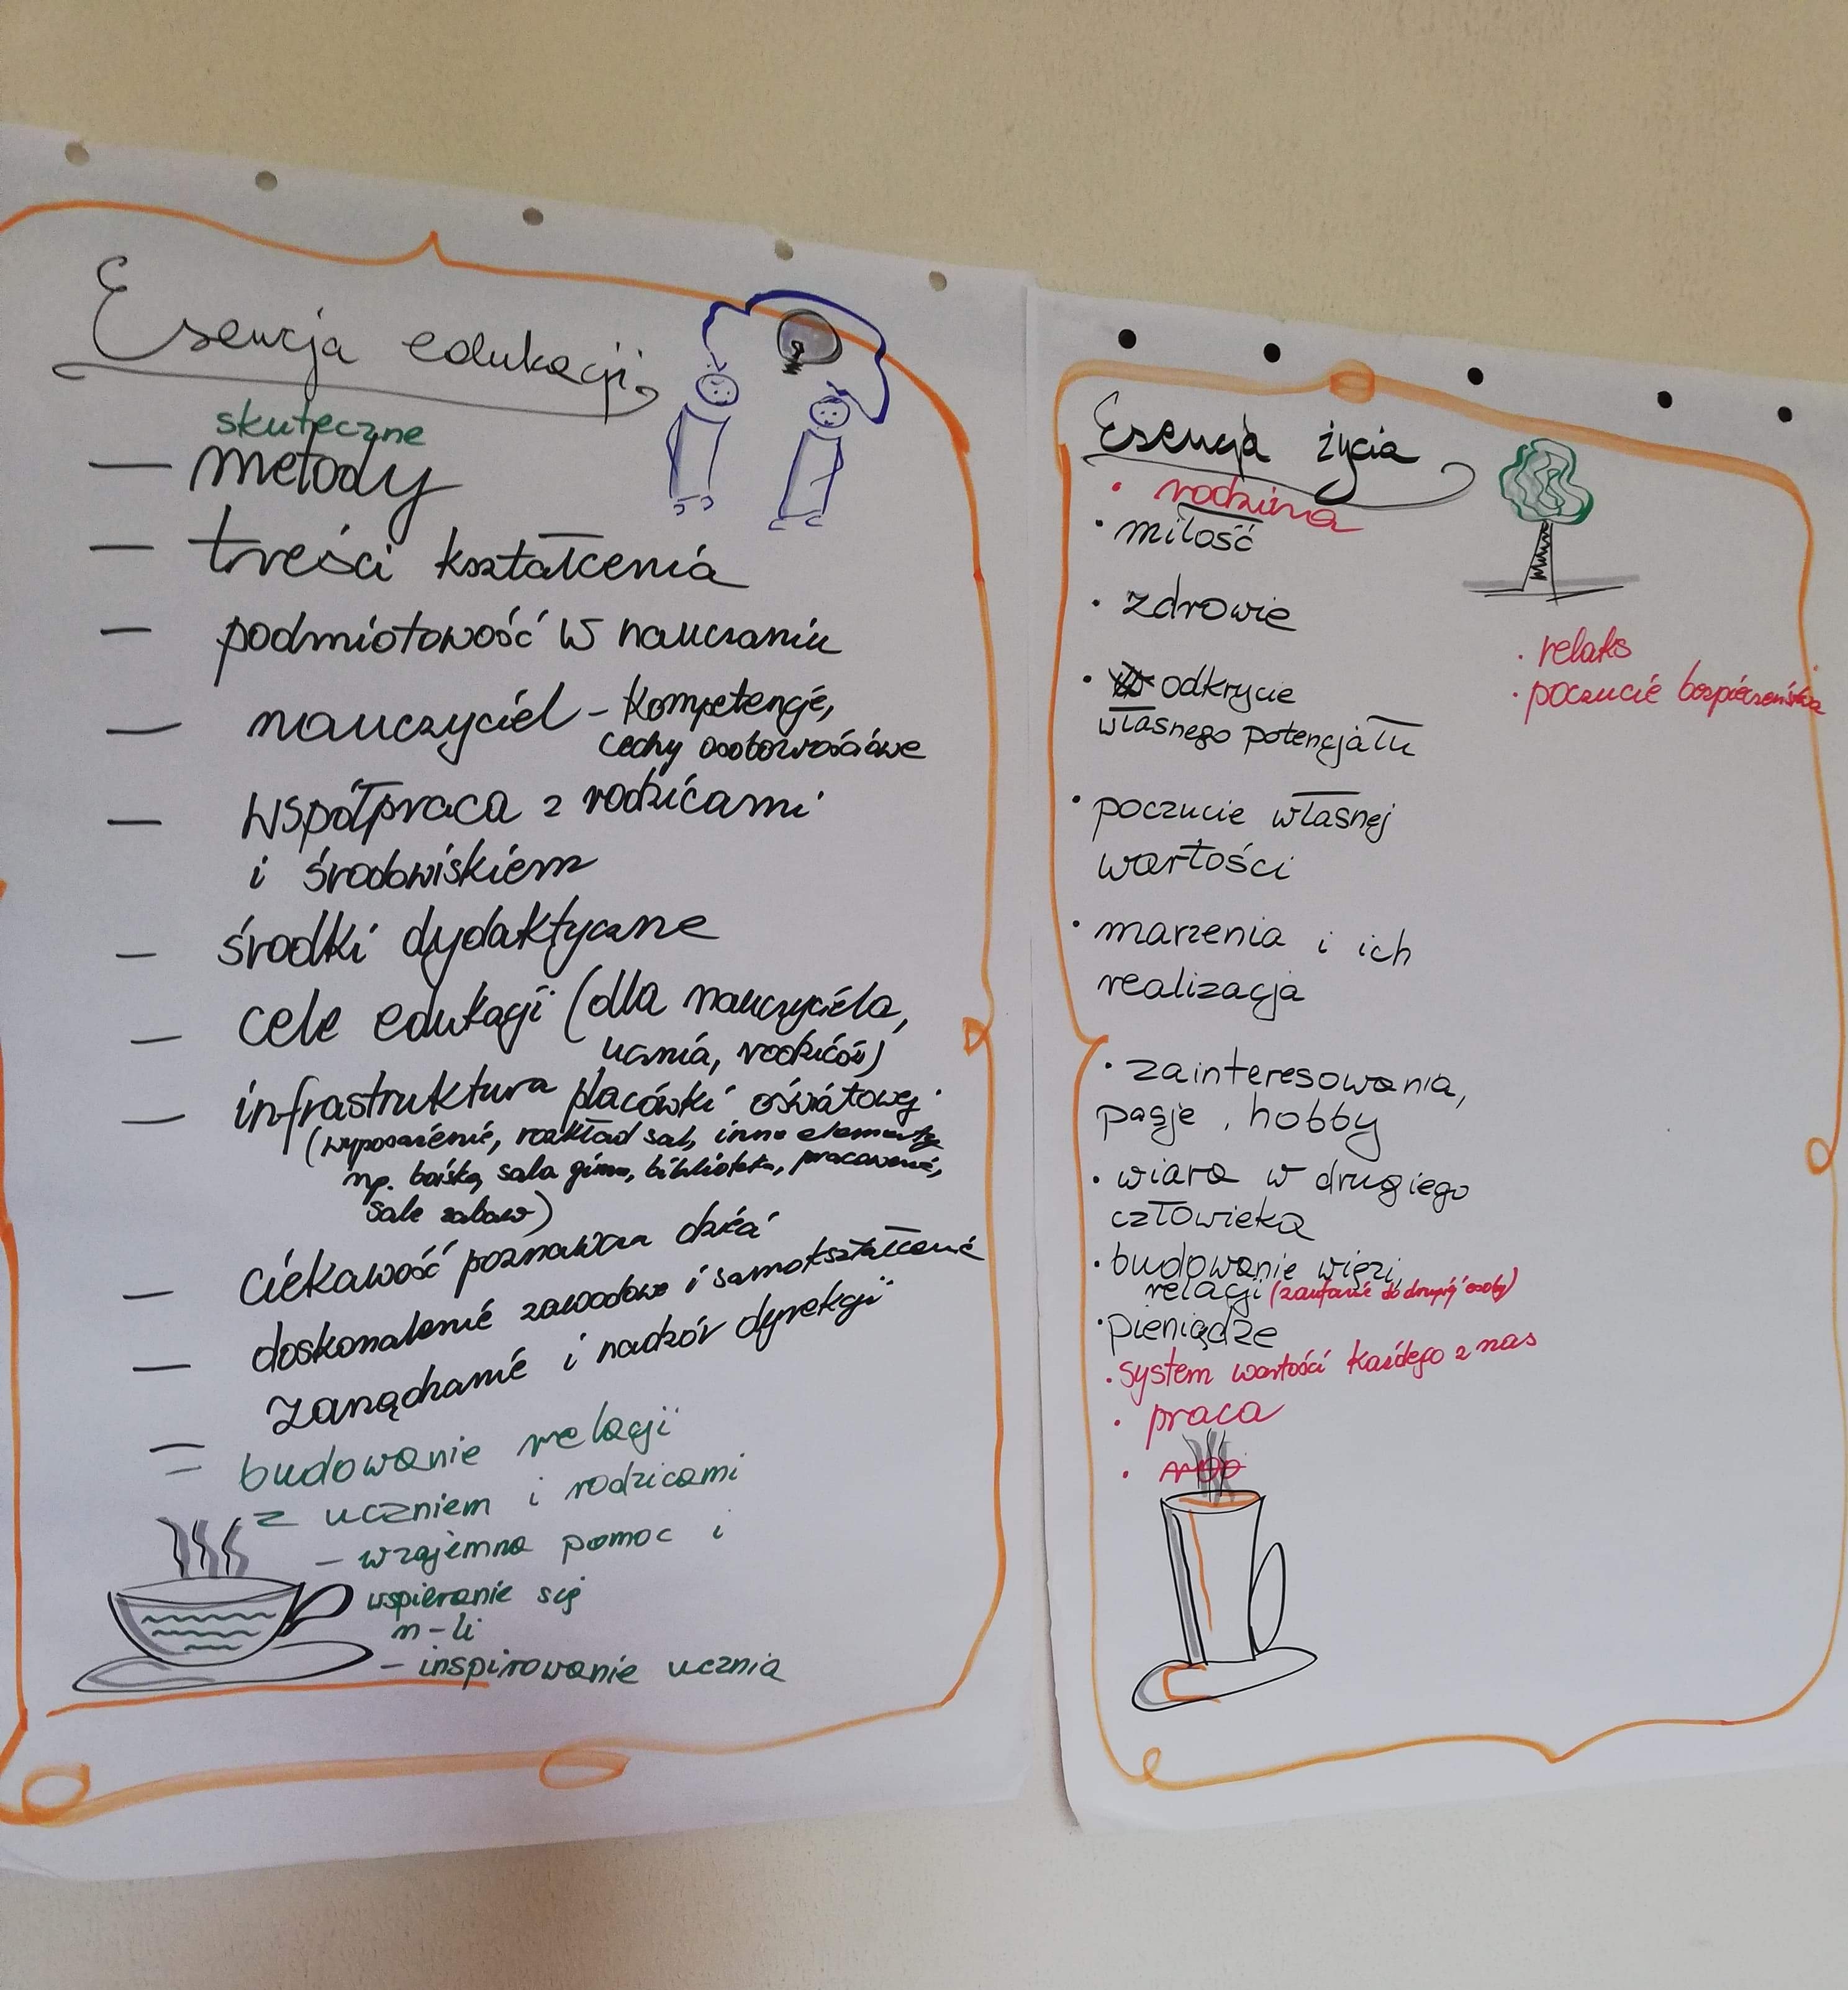 Esencja edukacji
skuteczne
— metody
— treści kształcenia
— podmiotowość w nauczaniu
— nauczyciel – kompetencje,
cechy osobowościowe
— współpraca z rodzicami
i środowiskiem
— środki dydaktyczne
— cele edukacji (dla nauczyciela,
ucznia, rodziców)
— infrastruktura placówki oświatowej
(wyposażenie, rozkład sal, inne elementy
np. boisko, sala gimn, biblioteka, pracownie,
sale zabaw)
— ciekawość poznawcza dzieci
— doskonalenie zawodowe i samokształcenie
— zarządzanie i nadzór dyrekcji
– budowanie relacji
z uczniem i rodzicami
– wzajemna pomoc i
wspieranie się
n-li
– inspirowanie ucznia
Esencja życia
• rodzina
• miłość
• zdrowie
• odkrycie
własnego potencjału
• poczucie własnej
wartości
• marzenia i ich
realizacja
• zainteresowania,
pasje, hobby
• wiara w drugiego
człowieka
• budowanie więzi,
relacji (zaufanie do drugiej osoby)
• pieniądze
• system wartości każdego z nas
• praca
• relaks
• poczucie bezpieczeństwa